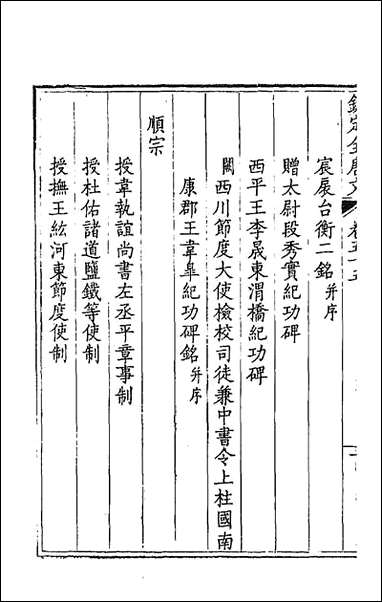 欽定全唐文 卷五十五
宸扆台衡二銘并序
贈太尉段秀實紀功碑
西平王李晟東渭橋紀功碑
闕西川節度大使檢校司徒兼中書令上柱國南
康郡王韋皐紀功碑銘并序
順宗
授韋執誼尚書左丞平章事制
授杜佑諸道鹽鐵等使制
授撫王紘河東節度使制